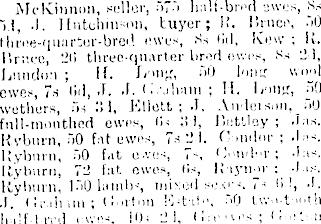 McKinnon, seller, 575 half-bred ewes, 8s
5d, J. Hutchinson, buyer; R. Bruce, 50
three-quarter-bred ewes, 8s 6d, Kew; R.
Bruce, 26 three-quarter bred ewes, 8s 2d,
Landon; H. Long, 50 long wool
ewes, 7s 6d, J. J. Graham; H. Long, 50
wethers, 5s 3d, Ellett; J. Anderson, 50
full-mouthed ewes, 6s 3d, Bettley; Jas.
Ryburn, 50 fat ewes, 7s 2d, Condor; Jas.
Ryburn, 50 fat ewes, 7s, Condor; Jas.
Ryburn, 72 fat ewes, 6s, Raynor; Jas.
Ryburn, 150 lambs, mixed sexes, 7s 6d, J.
J. Graham; Gorton Estate, 50 two-tooth
half-bred ewes, 10s 2d,